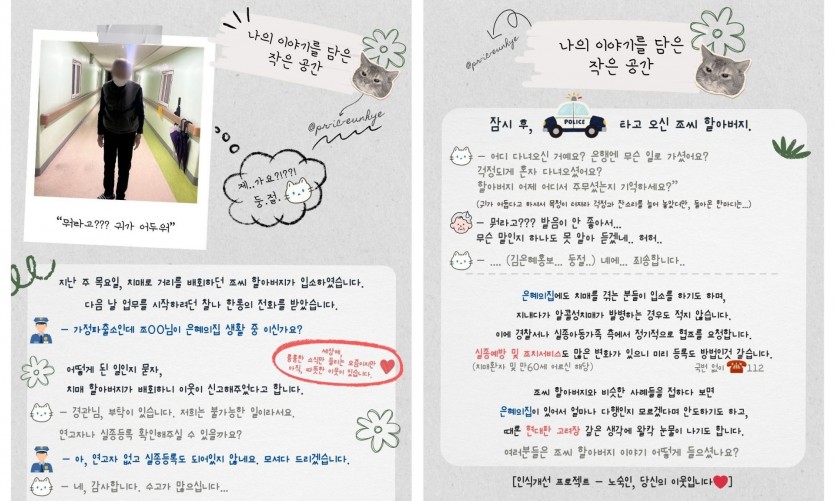 나의 이야기를 담은
작은 공간
@pr-ic-eunhye
제..가요?!??!
둥.절.
"뭐라고??? 귀가 어두워"
지난 주 목요일, 치매로 거리를 배회하던 조씨 할아버지가 입소하였습니다.
다음 날 업무를 시작하려던 찰나 한통의 전화를 받았습니다.
- 가정파출소인데 조OO님이 은혜의집 생활 중 이신가요?
세상에,
흉흉한 소식만 들리는 요즘이지만
아직, 따뜻한 이웃이 있습니다.
어떻게 된 일인지 묻자,
치매 할아버지가 배회하니 이웃이 신고해주었다고 합니다.
- 경관님, 부탁이 있습니다. 저희는 불가능한 일이라서요,
연고자나 실종등록 확인해주실 수 있을까요?
- 아, 연고자 없고 실종등록도 되어있지 않네요. 모셔다 드리겠습니다.
- 네, 감사합니다. 수고가 많으십니다...
@pr-ic-eunhye
나의 이야기를 담은
작은 공간
잠시 후, POLICE 타고 오신 조씨 할아버지.
- 어디 다녀오신 거예요? 은행엔 무슨 일로 가셨어요?
걱정되게 혼자 다녀오셨어요?
할아버지 어제 어디서 주무셨는지 기억하세요?"
(귀가 어둡다고 하셔서 목청이 터져라 걱정과 잔소리를 늘어 놓았더만, 돌아온 한마디는...)
- 뭐라고??? 발음이 안 좋아서...
무슨 말인지 하나도 못 알아 듣겠네.. 허허..
- .... (김은혜홍보... 둥절..) 네에... 죄송합니다..
은혜의집에도 치매를 겪는 분들이 입소를 하기도 하며,
지내다가 알콜성치매가 발병하는 경우도 적지 않습니다.
이에 경찰서나 실종아동가족 측에서 정기적으로 협조를 요청합니다.
실종예방 및 조치서비스도 많은 변화가 있으니 미리 등록도 방법인것 같습니다.
(치매환자 및 만60세 어르신 해당)
국번 없이 112
조씨 할아버지와 비슷한 사례들을 접하다 보면
은혜의집이 있어서 얼마나 다행인지 모르겠다며 안도하기도 하고,
때론 현대판 고려장 같은 생각에 왈칵 눈물이 나기도 합니다.
여러분들은 조씨 할아버지 이야기 어떻게 들으셨나요?
[인식개선 프로젝트 - 노숙인, 당신의 이웃입니다]